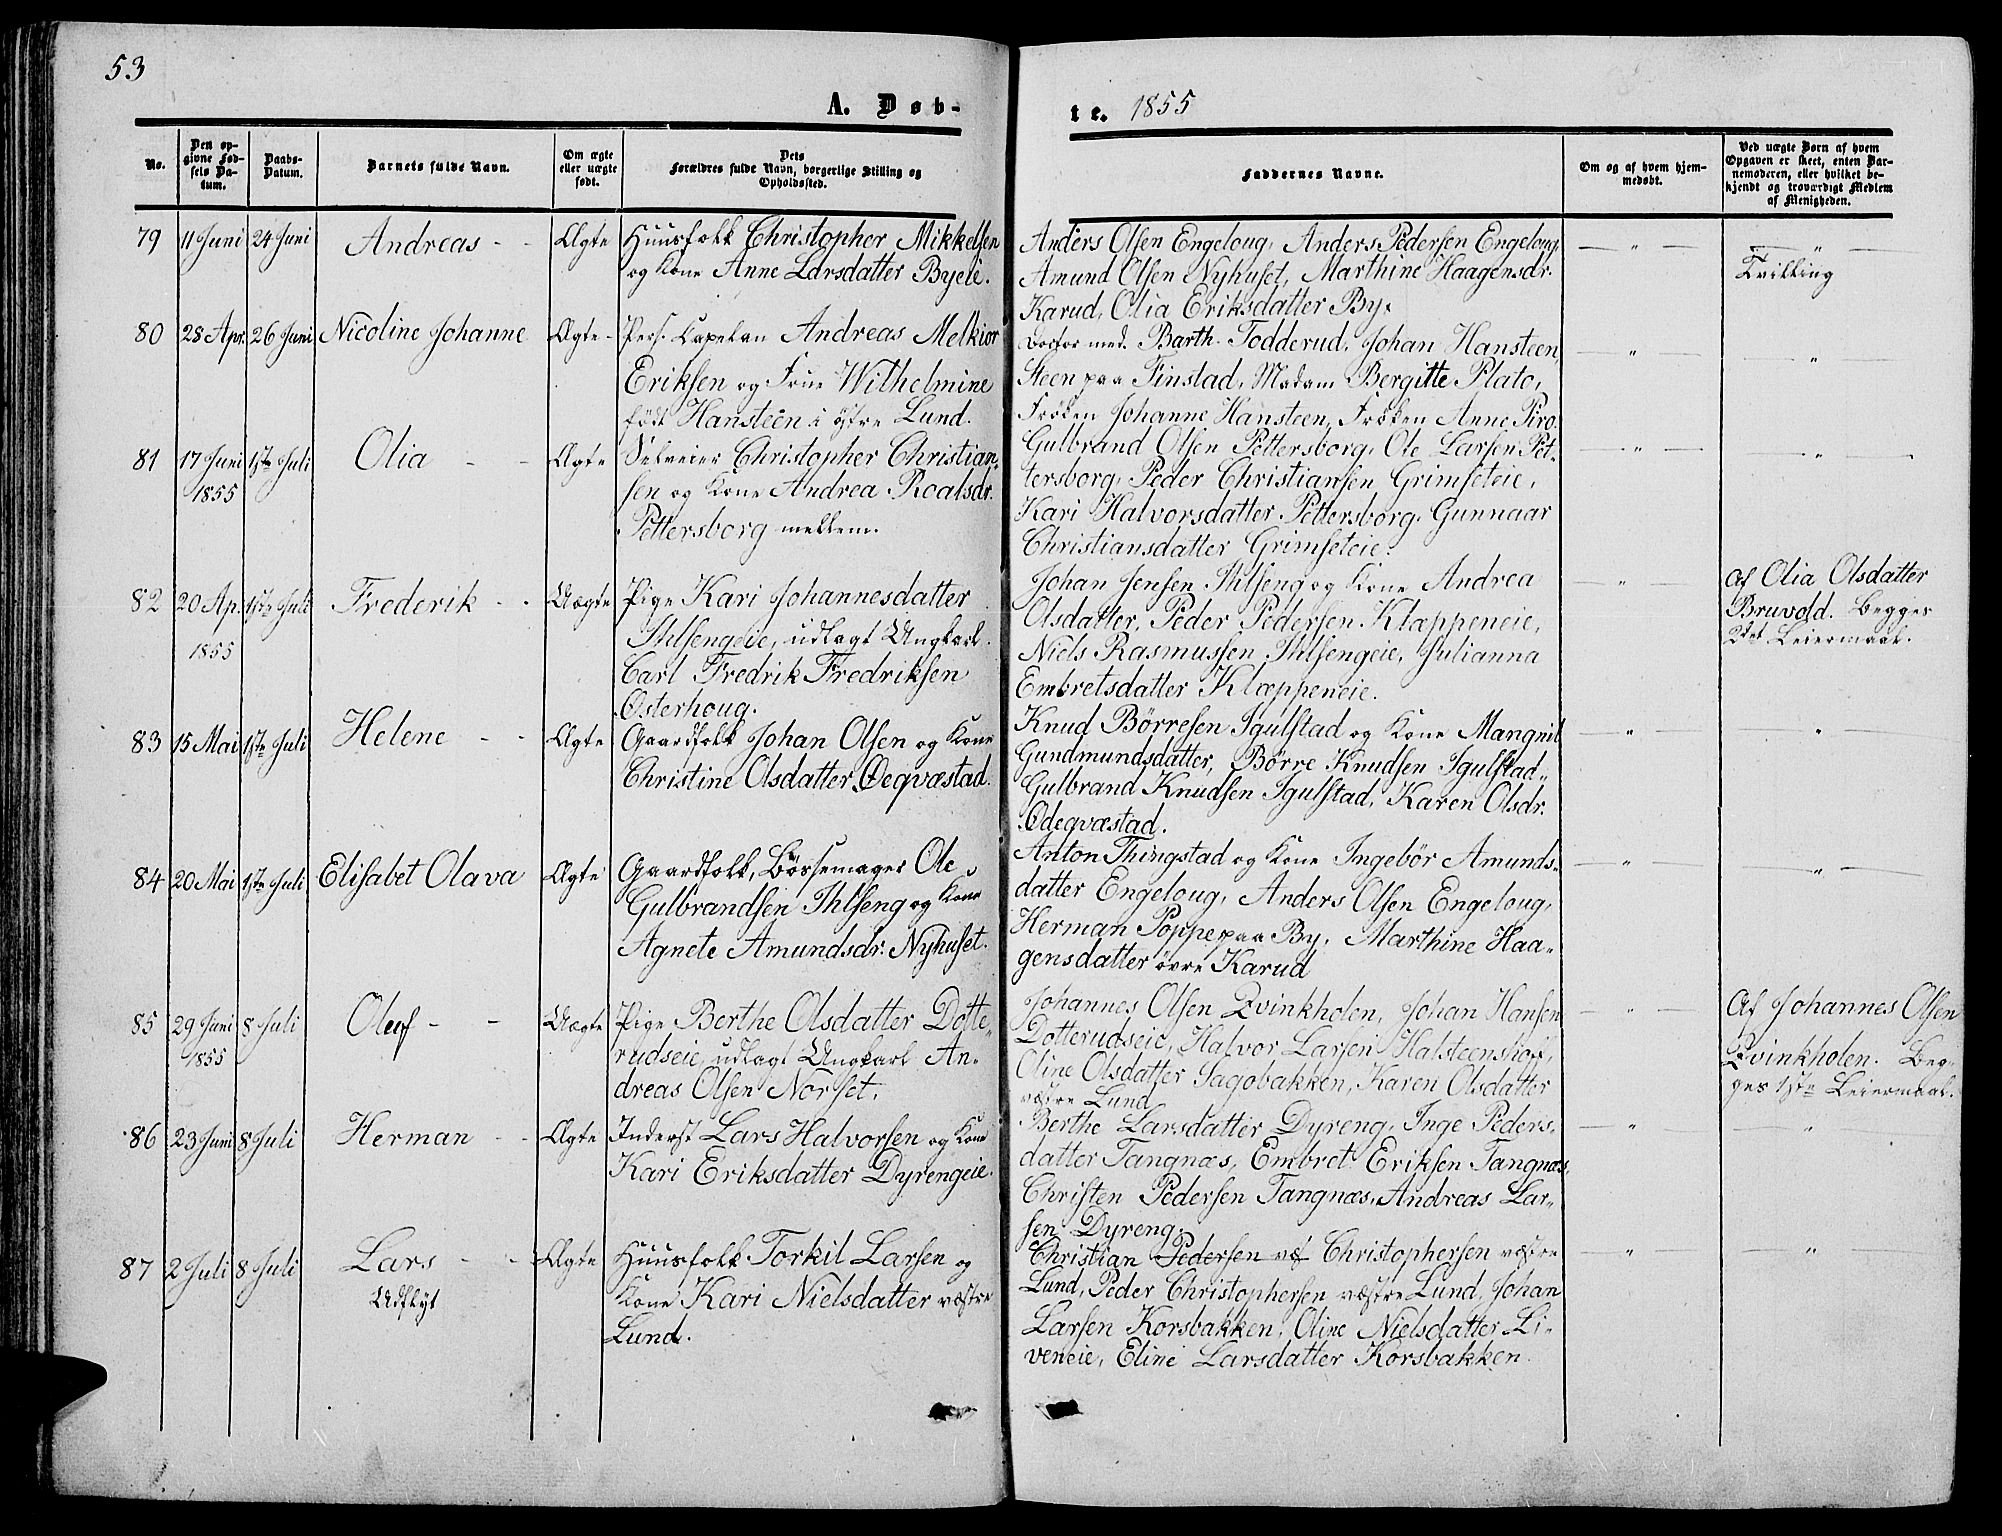 53
A. Døb-
te. 1855
No.
Den op-
givne Fød-
sels Da-
tum.
Daabs-
Datum.
Barnets fulde Navn.
Om ægte
eller uægte
født.
Dets
Forældres fulde Navn, borgerlige Stilling og
Opholdssted.
Faddernes Navne.
Om og af hvem hjem-
medøbt.
Ved uægte Børn af hvem
Opgaven er skeet, enten Bar-
nemoderen, eller hvilket be-
kjendt og troværdigt Medlem
af Menigheden.
79 11 Juni 24 Juni Andreas - - Ægte
Huusfolk Christopher Mikkelsen
og Kone Anne Larsdatter Byeie.
Anders Olsen Engeloug, Anders Pedersen Engeloug,
Amund Olsen Nyhuset, Marthine Haagensdr.
Karud, Olia Eriksdatter By.
— " —
— " —
Tvilling
80 28 Apr. 26 Juni Nicoline Johanne Ægte -
Pers. Capelan Andreas Melkior
Eriksen og Frue Wilhelmine
født Hansteen i östre Lund.
Doctor med. Barth. Todderud, Johan Hansteen,
Steen paa Finstad, Madam Bergitte Plato,
Fröken Johanne Hansteen, Fröken Anne Piro.
— " —
— " —
81 17 Juni 1ste Juli Olia - - Ægte
1855
Selveier Christopher Christian-
sen og Kone Andrea Roalsdr.
Pettersborg mellem.
Gulbrand Olsen Pettersborg, Ole Larsen Pet-
tersborg, Peder Christiansen Grimseteie,
Kari Halvorsdatter Pettersborg, Gunnaar
Christiansdatter Grimseteie.
— " —
— " —
82 20 Ap. 1ste Juli Frederik - - Uægte
1855
Pige Kari Johannesdatter
Ihlsengeie, udlagt Ungkarl
Carl Fredrik Fredriksen
Osterhoug.
Johan Jensen Ihlseng og Kone Andrea
Olsdatter, Peder Pedersen Klæppeneie,
Niels Rasmussen Ihlsengeie, Julianna
Embretsdatter Klæppeneie.
— " —
Af Olia Olsdatter
Bruvold. Begges
2det Leiermaal.
83 15 Mai 1ste Juli Helene - - Ægte
Gaardfolk Johan Olsen og Kone
Christine Olsdatter Oeqvæstad.
Knud Börresen Igulstad og Kone Mangnil
Gundmundsdatter, Börre Knudsen Igulstad,
Gulbrand Knudsen Igulstad, Karen Olsdr.
Odeqvæstad.
— " —
— " —
84 20 Mai 1ste Juli Elisabet Olava Ægte
Gaardfolk, Börsemager Ole
Gulbrandsen Ihlseng og Kone
Agnete Amundsdr. Nyhuset.
Anton Thingstad og Kone Ingebör Amunds-
datter Engeloug, Anders Olsen Engeloug,
Herman Poppe paa By, Marthine Haa-
gensdatter övre Karud
— " —
— " —
85 29 Juni 8 Juli Oluf - - Uægte
1855
Pige Berthe Olsdatter Dotte-
rudseie, udlagt Ungkarl An-
dreas Olsen Norset.
Johannes Olsen Qvinkholen, Johan Hansen
Dotterudseie, Halvor Larsen Halsteenshoff,
Oline Olsdatter Sagobakken, Karen Olsdatter
væstre Lund
— " —
Af Johannes Olsen
Qvinkholen. Beg-
ges 1ste Leiermaal.
86 23 Juni 8 Juli Herman - - Ægte
Inderst Lars Halvorsen og Kone
Kari Eriksdatter Dyrengeie.
Berthe Larsdatter Dyreng, Inge Peders-
datter Tangnæs, Embret Eriksen Tangnæs,
Christen Pedersen Tangnæs, Andreas Lar-
sen Dyreng.
— " —
— " —
87 2 Juli 8 Juli Lars - - Ægte
Udflyt
Huusfolk Torkil Larsen og
Kone Kari Nielsdatter væstre
Lund.
Christian Pedersen væ Christophersen væstre
Lund, Peder Christophersen væstre Lund, Johan
Larsen Korsbakken, Oline Nielsdatter Li-
veneie, Eline Larsdatter Korsbakken.
— " —
— " —